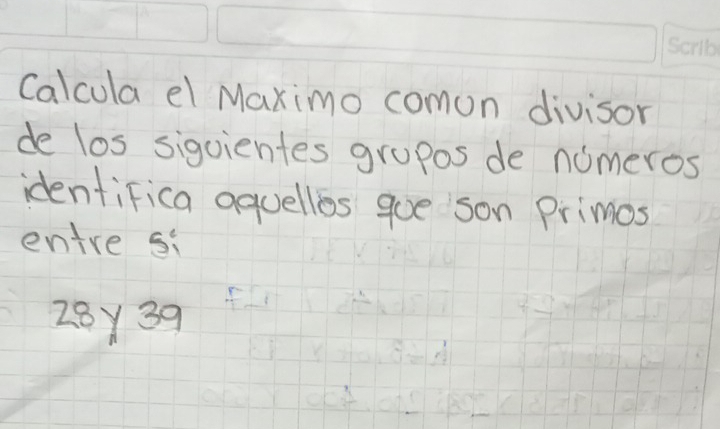 Scrib
Calcula el Maximo comon divisor
de los siguientes grupos de números
identifica aquellos que son primos
entre sí
28 y 39